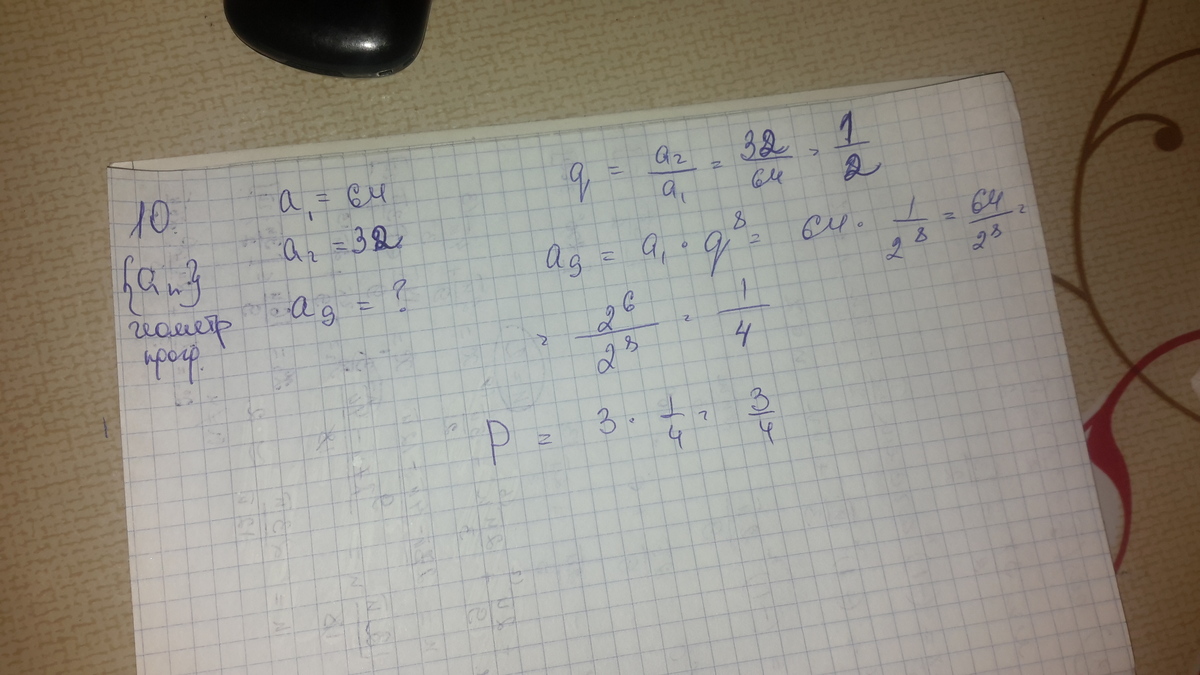 10.
{aₙ}
геометр
прогр.
a₁ = 64
a₂ = 32
a₉ = ?
q = a₂/a₁ = 32/64 = 1/2
a₉ = a₁ · q⁸ = 64 · 1/2⁸ = 64/2⁸ =
= 2⁶/2⁸ = 1/4
P = 3 · 1/4 = 3/4